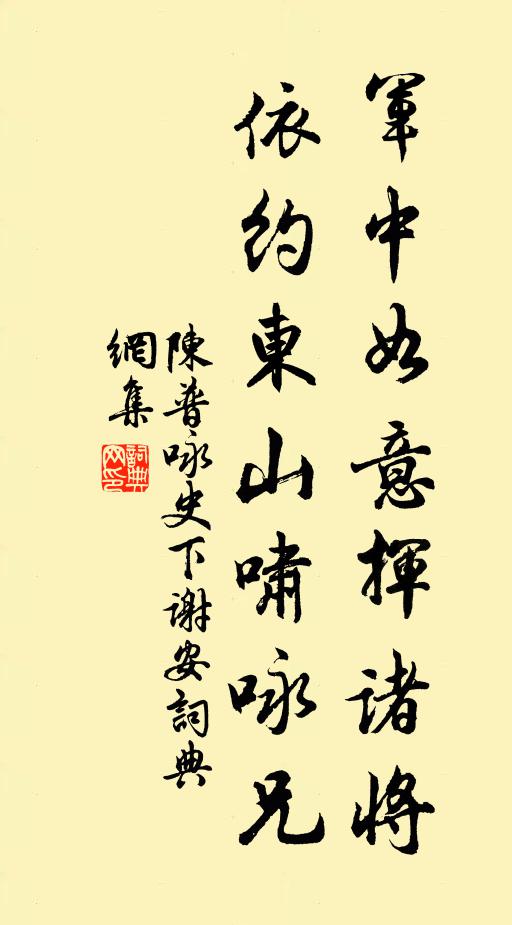 軍中如意揮諸將
依約東山嘯咏兄
陳普咏史下謝安詞典
網集
詞典網印